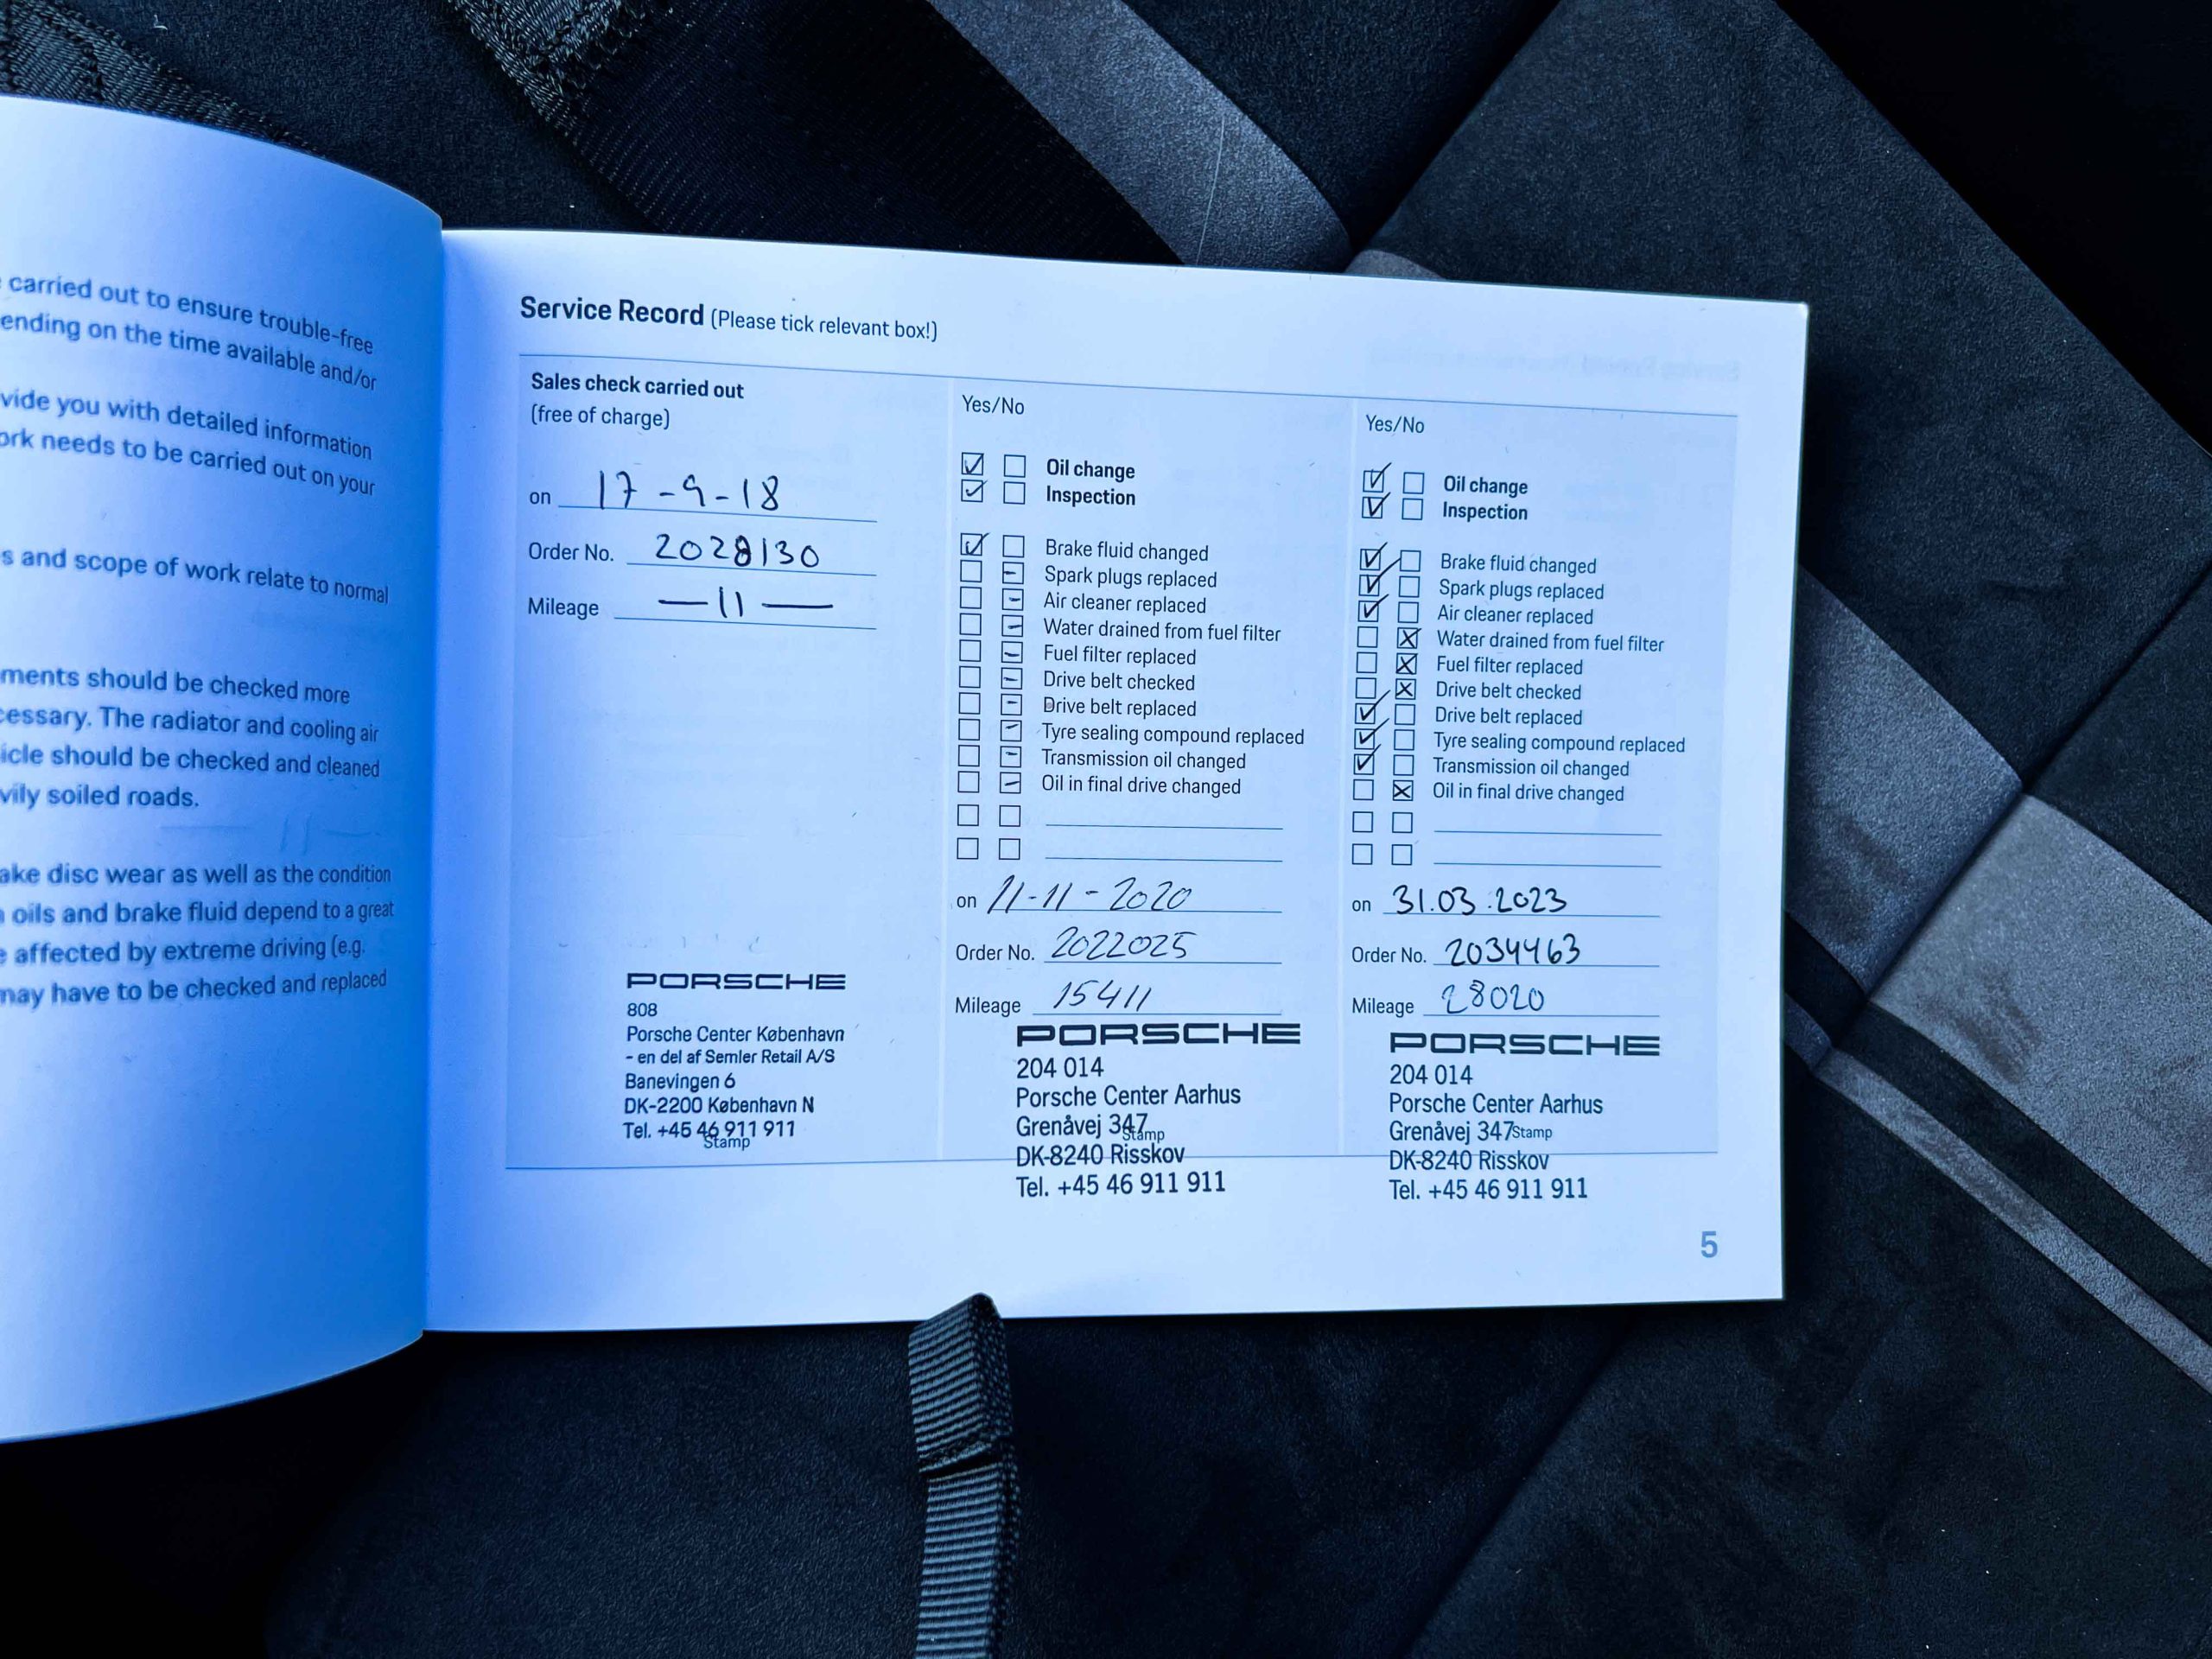 carried out to ensure trouble-free
ending on the time available and/or
vide you with detailed information
ork needs to be carried out on your
s and scope of work relate to normal
ments should be checked more
cessary. The radiator and cooling air
icle should be checked and cleaned
vily soiled roads.
ake disc wear as well as the condition
oils and brake fluid depend to a great
e affected by extreme driving (e.g.
may have to be checked and replaced
Service Record (Please tick relevant box!)
Sales check carried out
(free of charge)
on 17-9-18
Order No. 2028130
Mileage —11—
PORSCHE
808
Porsche Center København
- en del af Semler Retail A/S
Banevingen 6
DK-2200 København N
Tel. +45 46 911 911
Stamp
Yes/No
Oil change
Inspection
Brake fluid changed
Spark plugs replaced
Air cleaner replaced
Water drained from fuel filter
Fuel filter replaced
Drive belt checked
Drive belt replaced
Tyre sealing compound replaced
Transmission oil changed
Oil in final drive changed
on 11-11-2020
Order No. 2022025
Mileage 15411
PORSCHE
204 014
Porsche Center Aarhus
Grenåvej 347
Stamp
DK-8240 Risskov
Tel. +45 46 911 911
Yes/No
Oil change
Inspection
Brake fluid changed
Spark plugs replaced
Air cleaner replaced
Water drained from fuel filter
Fuel filter replaced
Drive belt checked
Drive belt replaced
Tyre sealing compound replaced
Transmission oil changed
Oil in final drive changed
on 31.03.2023
Order No. 2034463
Mileage 28020
PORSCHE
204 014
Porsche Center Aarhus
Grenåvej 347
Stamp
DK-8240 Risskov
Tel. +45 46 911 911
5